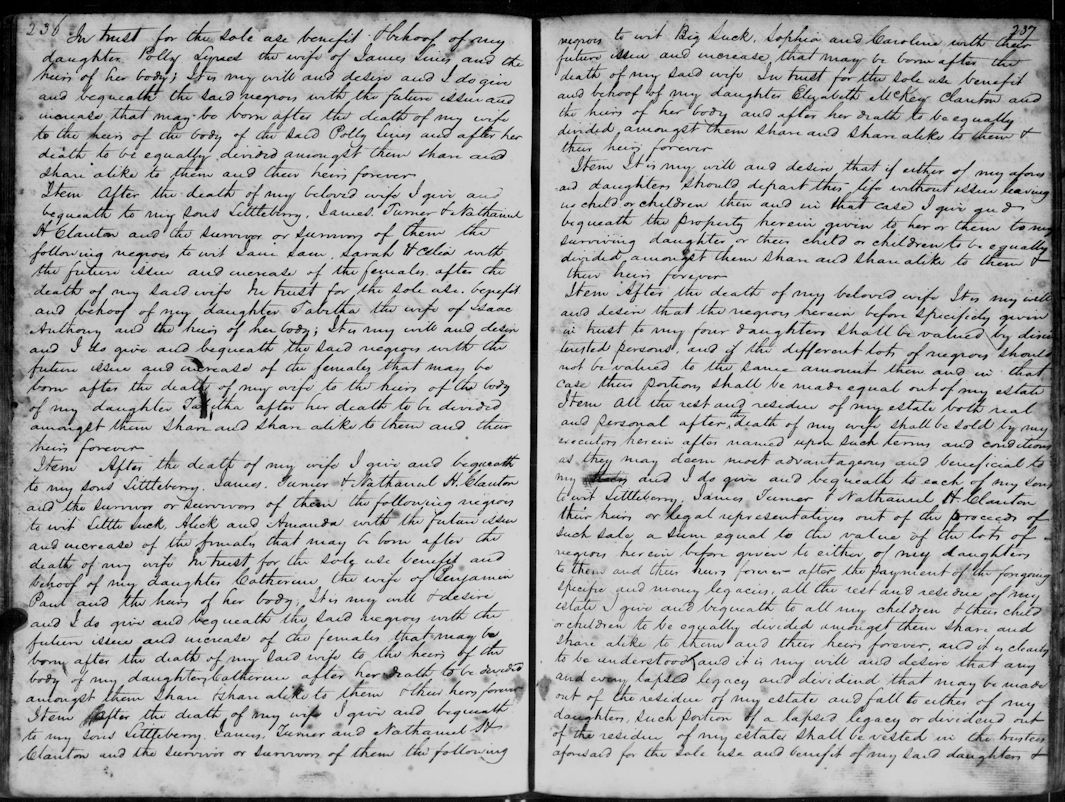 236
In trust for the sole use benefit & behoof of my
daughter Polly Lynes the wife of James Lines and the
heirs of her body; It is my will and desire and I do give
and bequeath the said negroes with the future issue and
increase that may be born after the death of my wife
to the heirs of the body of the said Polly Lines and after her
death to be equally divided amongst them share and
share alike to them and their heirs forever
Item After the death of my beloved wife I give and
bequeath to my sons Littleberry, James, Turner & Nathaniel
H Clanton and the survivor or survivors of them the
following negroes to wit Sam, Sarah & Celia with
the future issue and increase of the females after the
death of my said wife In trust for the sole use, benefit
and behoof of my daughter Tabitha the wife of Isaac
Anthony and the heirs of her body; It is my will and desire
and I do give and bequeath the said negroes with the
future issue and increase of the females that may be
born after the death of my wife to the heirs of the body
of my daughter Tabitha after her death to be divided
amongst them share and share alike to them and their
heirs forever
Item After the death of my wife I give and bequeath
to my sons Littleberry, James, Turner & Nathaniel H. Clanton
and the survivor or survivors of them the following negroes
to wit Little Suck, Aleck and Amanda with the future issue
and increase of the females that may be born after the
death of my wife In trust for the sole use benefit and
behoof of my daughter Catherine the wife of Benjamin
Paul and the heirs of her body; It is my will & desire
and I do give and bequeath the said negroes with the
future issue and increase of the females that may be
born after the death of my said wife to the heirs of the
body of my daughter Catherine after her death to be divided
amongst them share & share alike to them & their heirs forever
Item After the death of my wife I give and bequeath
to my sons Littleberry, James, Turner and Nathaniel H
Clanton and the survivor or survivors of them the following
237
negroes to wit Big Suck, Sophia and Caroline with their
future issue and increase, that may be born after the
death of my said wife In trust for the sole use benefit
and behoof of my daughter Elizabeth McKey Clanton and
the heirs of her body and after her death to be equally
divided amongst them share and share alike to them &
their heirs forever
Item It is my will and desire that if either of my afores
aid daughters should depart this life without issue leaving
no child or children then and in that case I give and
bequeath the property herein given to her or them to my
surviving daughter or their child or children to be equally
divided amongst them share and share alike to them &
their heirs forever
Item After the death of my beloved wife It is my will
and desire that the negroes herein before specificly given
in trust to my four daughters shall be valued by disin
terested persons, and if the different lots of negroes should
not be valued to the same amount then and in that
case their portions shall be made equal out of my estate
Item All the rest and residue of my estate both real
and personal after the death of my wife shall be sold by my
executors herein after named upon such terms and conditions
as they may deem most advantageous and beneficial to
my and I do give and bequeath to each of my sons
to wit Littleberry, James Turner & Nathaniel H Clanton
their heirs or legal representatives out of the proceeds of
such sale, a sum equal to the value of the lots of
negroes herein before given to either of my daughters
to them and their heirs forever after the payment of the foregoing
specific and money legacies, all the rest and residue of my
estate I give and bequeath to all my children & their child
or children to be equally divided amongst them share and
share alike to them and their heirs forever, and it is clearly
to be understood, and it is my will and desire that any
and every lapsed legacy and dividend that may be made
out of the residue of my estate and fall to either of my
daughters, such portion of a lapsed legacy or dividend out
of the residue of my estate shall be vested in the trustees
aforesaid for the sole use and benefit of my said daughters &